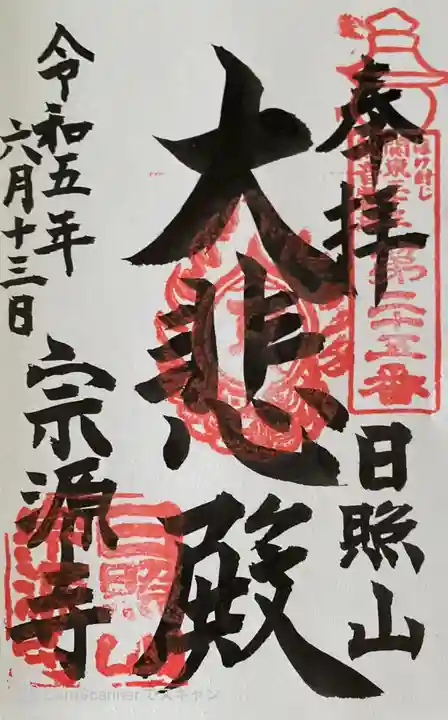 奉拝
日照山
大悲殿
令和五年
六月十三日
宗源寺
第二十五番
日照山
でスキャン